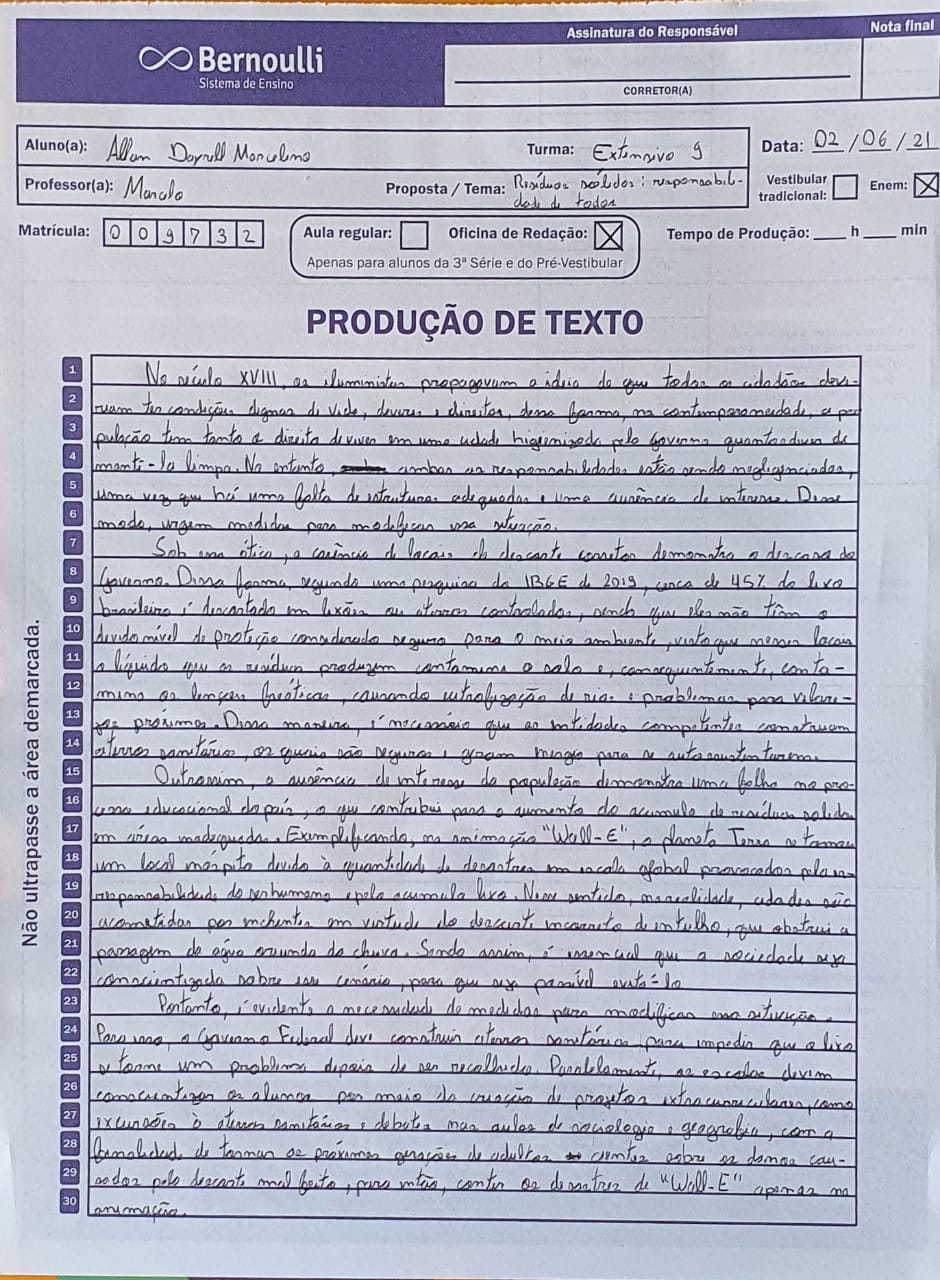 Assinatura do Responsável
Nota final
Bernoulli
Sistema de Ensino
CORRETOR(A)
Aluno(a): Allan Dayrell Marcelino
Turma: Extensivo 9
Data: 02/06/21
Professor(a): Marcelo
Proposta / Tema: Resíduos sólidos: responsabili-
dade de todos
Vestibular tradicional:
Enem: X
Matrícula: 0 0 9 7 3 2
Aula regular:
Oficina de Redação: X
Tempo de Produção: ____ h ____ min
Apenas para alunos da 3ª Série e do Pré-Vestibular
PRODUÇÃO DE TEXTO
Não ultrapasse a área demarcada.
1 No século XVIII, os iluministas propagavam a ideia de que todos os cidadãos deve-
2 riam ter condições dignas de vida, deveres e direitos, dessa forma, na contemporaneidade, a po
3 pulação tem tanto o direito de viver em uma cidade higienizada pelo Governo quanto o dever de
4 mantê-la limpa. No entanto, ambas as responsabilidades estão sendo negligenciadas,
5 uma vez que há uma falta de estruturas adequadas e uma ausência de interesse. Desse
6 modo, urgem medidas para modificar essa situação.
7 Sob essa ótica, a carência de locais de descarte corretos demonstra o descaso do
8 Governo. Dessa forma, segundo uma pesquisa do IBGE de 2019, cerca de 45% do lixo
9 brasileiro é descartado em lixões ou aterros controlados, sendo que eles não têm o
10 devido nível de proteção considerado seguro para o meio ambiente, visto que nesses locais
11 o líquido que os resíduos produzem contamina o solo e, consequentemente, conta-
12 mina os lençóis freáticos, causando eutrofização de rios e problemas para vilare-
13 jos próximos. Dessa maneira, é necessário que as entidades competentes construam
14 aterros sanitários, os quais são seguros e geram energia para se autossustentarem.
15 Outrossim, a ausência de interesse da população demonstra uma falha no pro-
16 cesso educacional do país, o que contribui para o aumento do acumulo de resíduos solidos
17 em áreas inadequadas. Exemplificando, na animação "Wall-E", o planeta Terra se tornou
18 um local inóspito devido à quantidade de desastres em escala global provocados pela ir-
19 responsabilidade do ser humano e pelo acumulo lixo. Nesse sentido, na realidade, cidades são
20 acometidas por enchentes em virtude do descarte incorreto de entulho, que obstrui a
21 passagem de água oriunda da chuva. Sendo assim, é essencial que a sociedade seja
22 conscientizada sobre esse cenário, para que seja possível evitá-lo
23 Portanto, é evidente a necessidade de medidas para modificar essa situação.
24 Para isso, o Governo Federal deve construir aterros sanitários, para impedir que o lixo
25 se torne um problema depois de ser recolhido. Paralelamente, as escolas devem
26 conscientizar os alunos por meio da criação de projetos extracurriculares, como
27 excursões à aterros sanitários e debates nas aulas de sociologia e geografia, com a
28 finalidade de tornar as próximas gerações de adultos cientes sobre os danos cau-
29 sados pelo descarte mal feito, para então, conter os desastres de "Wall-E" apenas na
30 animação.